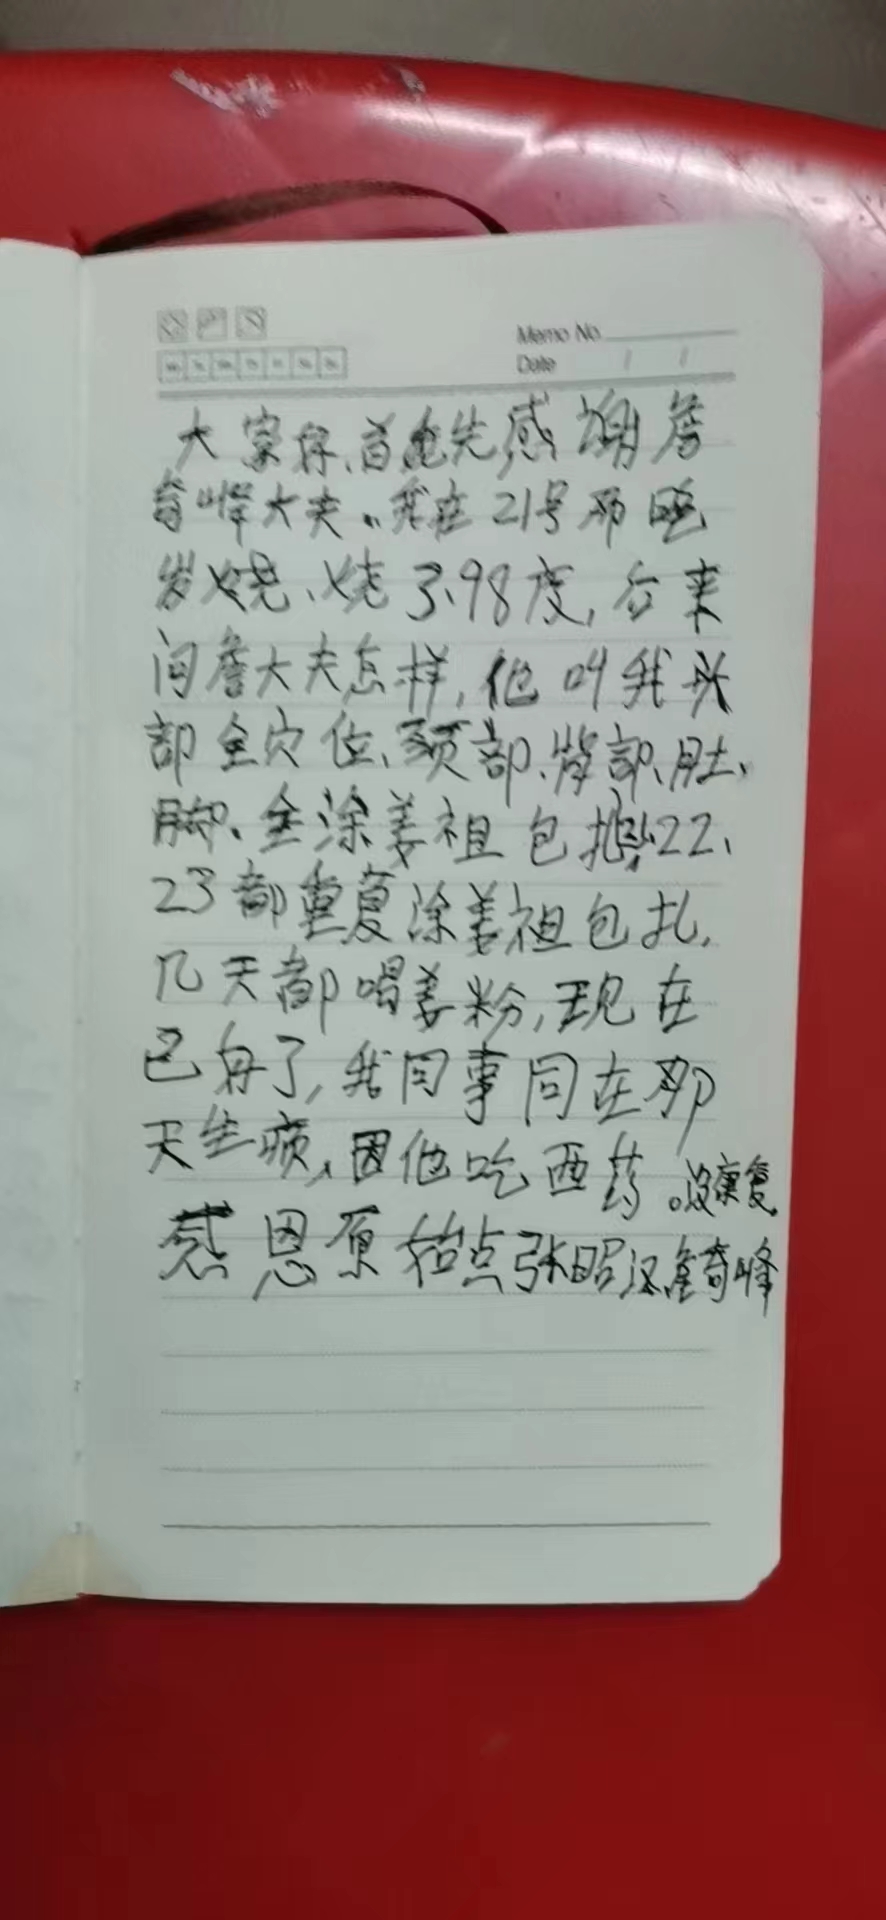 Memo No.
Date / /
大家好、首先感谢詹
奇峰大夫。我在21号那晚
发烧、烧了、98度,后来
问詹大夫怎样,他叫我头
部全穴位、颈部、背部、肚、
脚、全涂姜祖包扎22、
23都重复涂姜祖包扎,
几天都喝姜粉,现在
已有了,我同事同在那
天生病、因他吃西药。没康复
感恩原始点张昭汉詹奇峰